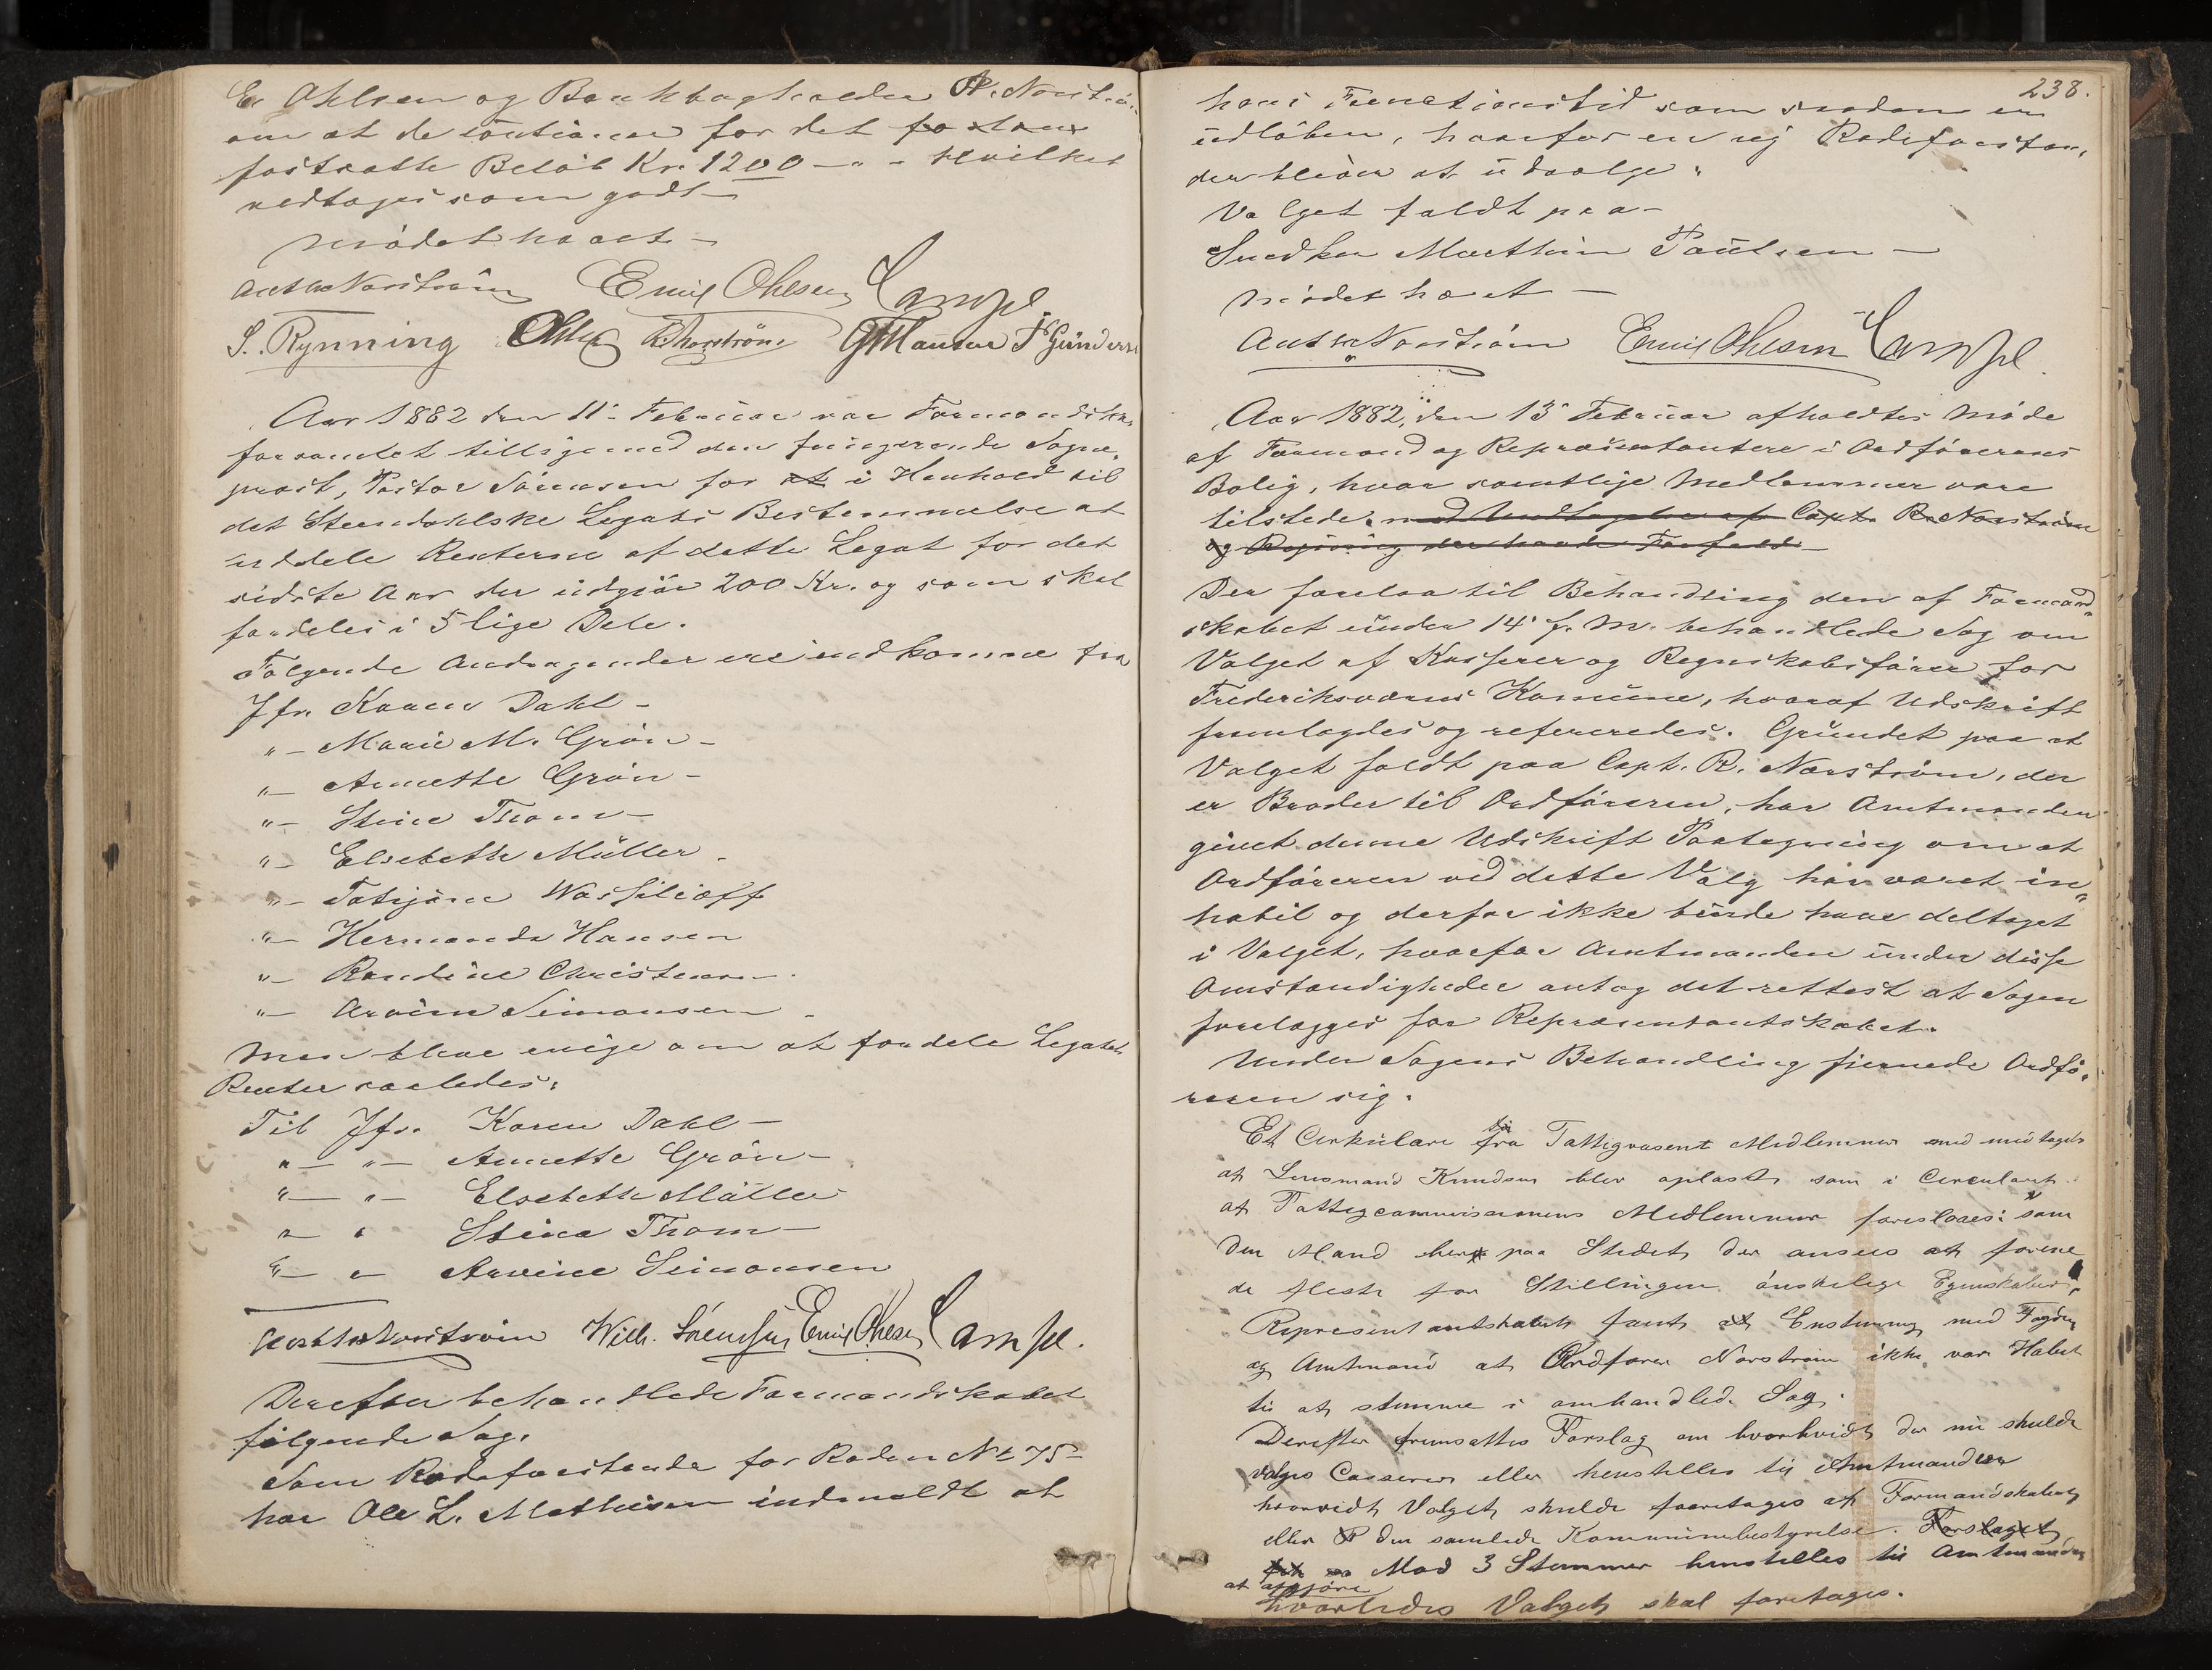 E. Ohlsen og Bankbogholder R. Norström
om at de cautionere for det
fastsatte Beløb Kr. 1200 — " - Hvilket
vedtoges som godt —
Mödet hævet —
Anth. Norström Emil Ohlsen Lampe
S. Rynning Ohlsen R. Norström G. Hansen J. Gündersen
Aar 1882 den 11te Februar var Formandska-
forsamlet tilligemed den fungerende Sogne-
prest, Pastor Sörensen for at i Henhold til
det Steendahlske Legats Bestemmelse at
uddele Renterne af dette Legat for det
sidste Aar der udgjör 200 Kr. og som skal
fordeles i 5 lige Dele.
Fölgende Andragender ere indkomne fra
Jfr. Karen Dahl —
"— Marie M. Grön —
"— Annette Grön —
"— Stine Thom —
"— Elsebeth Müller.
"— Tatjana Wassilioff
"— Hermanda Hansen
"— Randine Christensen.
"— Arvine Simonsen —
Man blev enige om at fordele Legatets
Renter saaledes:
Til Jfr. Karen Dahl —
"— "— Annette Grön —
"— "— Elsebeth Müller
" " Stina Thom —
"— " Arvine Simonsen
Anth. Norström Wilh. Sörenssen Emil Ohlsen Lampe.
Derefter behandlede Formandskabet
fölgende Sag.
Som Rodeforstander for Roden No 75
har Ole L. Mathisen indmeldt at
238.
hans Functionstid som saadan er
udlöben, hvorfor en ny Rodeforstan-
der bliver at udvælge.
Valget faldt paa —
Snedker Marthin Paulsen —
Mödet hævet —
Anth. Norström Emil Ohlsen Lampe.
Aar 1882, den 13 Februar afholdtes Möde
af Formænd og Repræsentantere i Ordförerens
Bolig, hvor samtlige Medlemmer vare
tilstede. med Undtagelse af Capt. R. Norström
og Rynning der havde Forfald —
Der forelaa til Behandling den af Formand-
skabet under 14' f. M. behandlede Sag om
Valget af Kasserer og Regnskabsförer for
Frederiksværns Komune, hvoraf Udskrift
fremlagdes og refereredes. Grundet paa at
Valget faldt paa Capt. R. Norström, der
er Broder til Ordföreren, har Amtmanden
givet denne Udskrift Paategning om at
Ordföreren ved dette Valg har været in-
habil og derfor ikke burde have deltaget
i Valget, hvorfor Amtmanden under disse
Omstændigheder antog det rettest at Sagen
forelægges for Repræsentantskabet.
Under Sagens Behandling fjernede Ordfö-
reren sig.
Et Cirkulære fra til Fattigvæsent Medlemmer med
at Lensmand Knudsen blev oplæst, som i Circulæret
af Fattigcommissionens Medlemmer foreslaaes som
den Mand her paa Stedet, der ansees at forene
de fleste for Stillingen önskelige Egenskaber,
Representantskabet fant at Enstemmig med Fogden
og Amtmand at Ordförer Norström ikke var Habil
til at stemme i omhandlede Sag.
Derefter fremsattes Forslag om hvorvidt der nu skulde
vælges Casserer eller henstilles til Amtmanden
hvorvidt Valget skulde foretages af Formandskabet
eller den samlede Kommunebestyrelse. Forslaget
Mod 3 Stemmer henstilles til Amtmanden
at afgjöre
hvorledes Valget skal foretages.